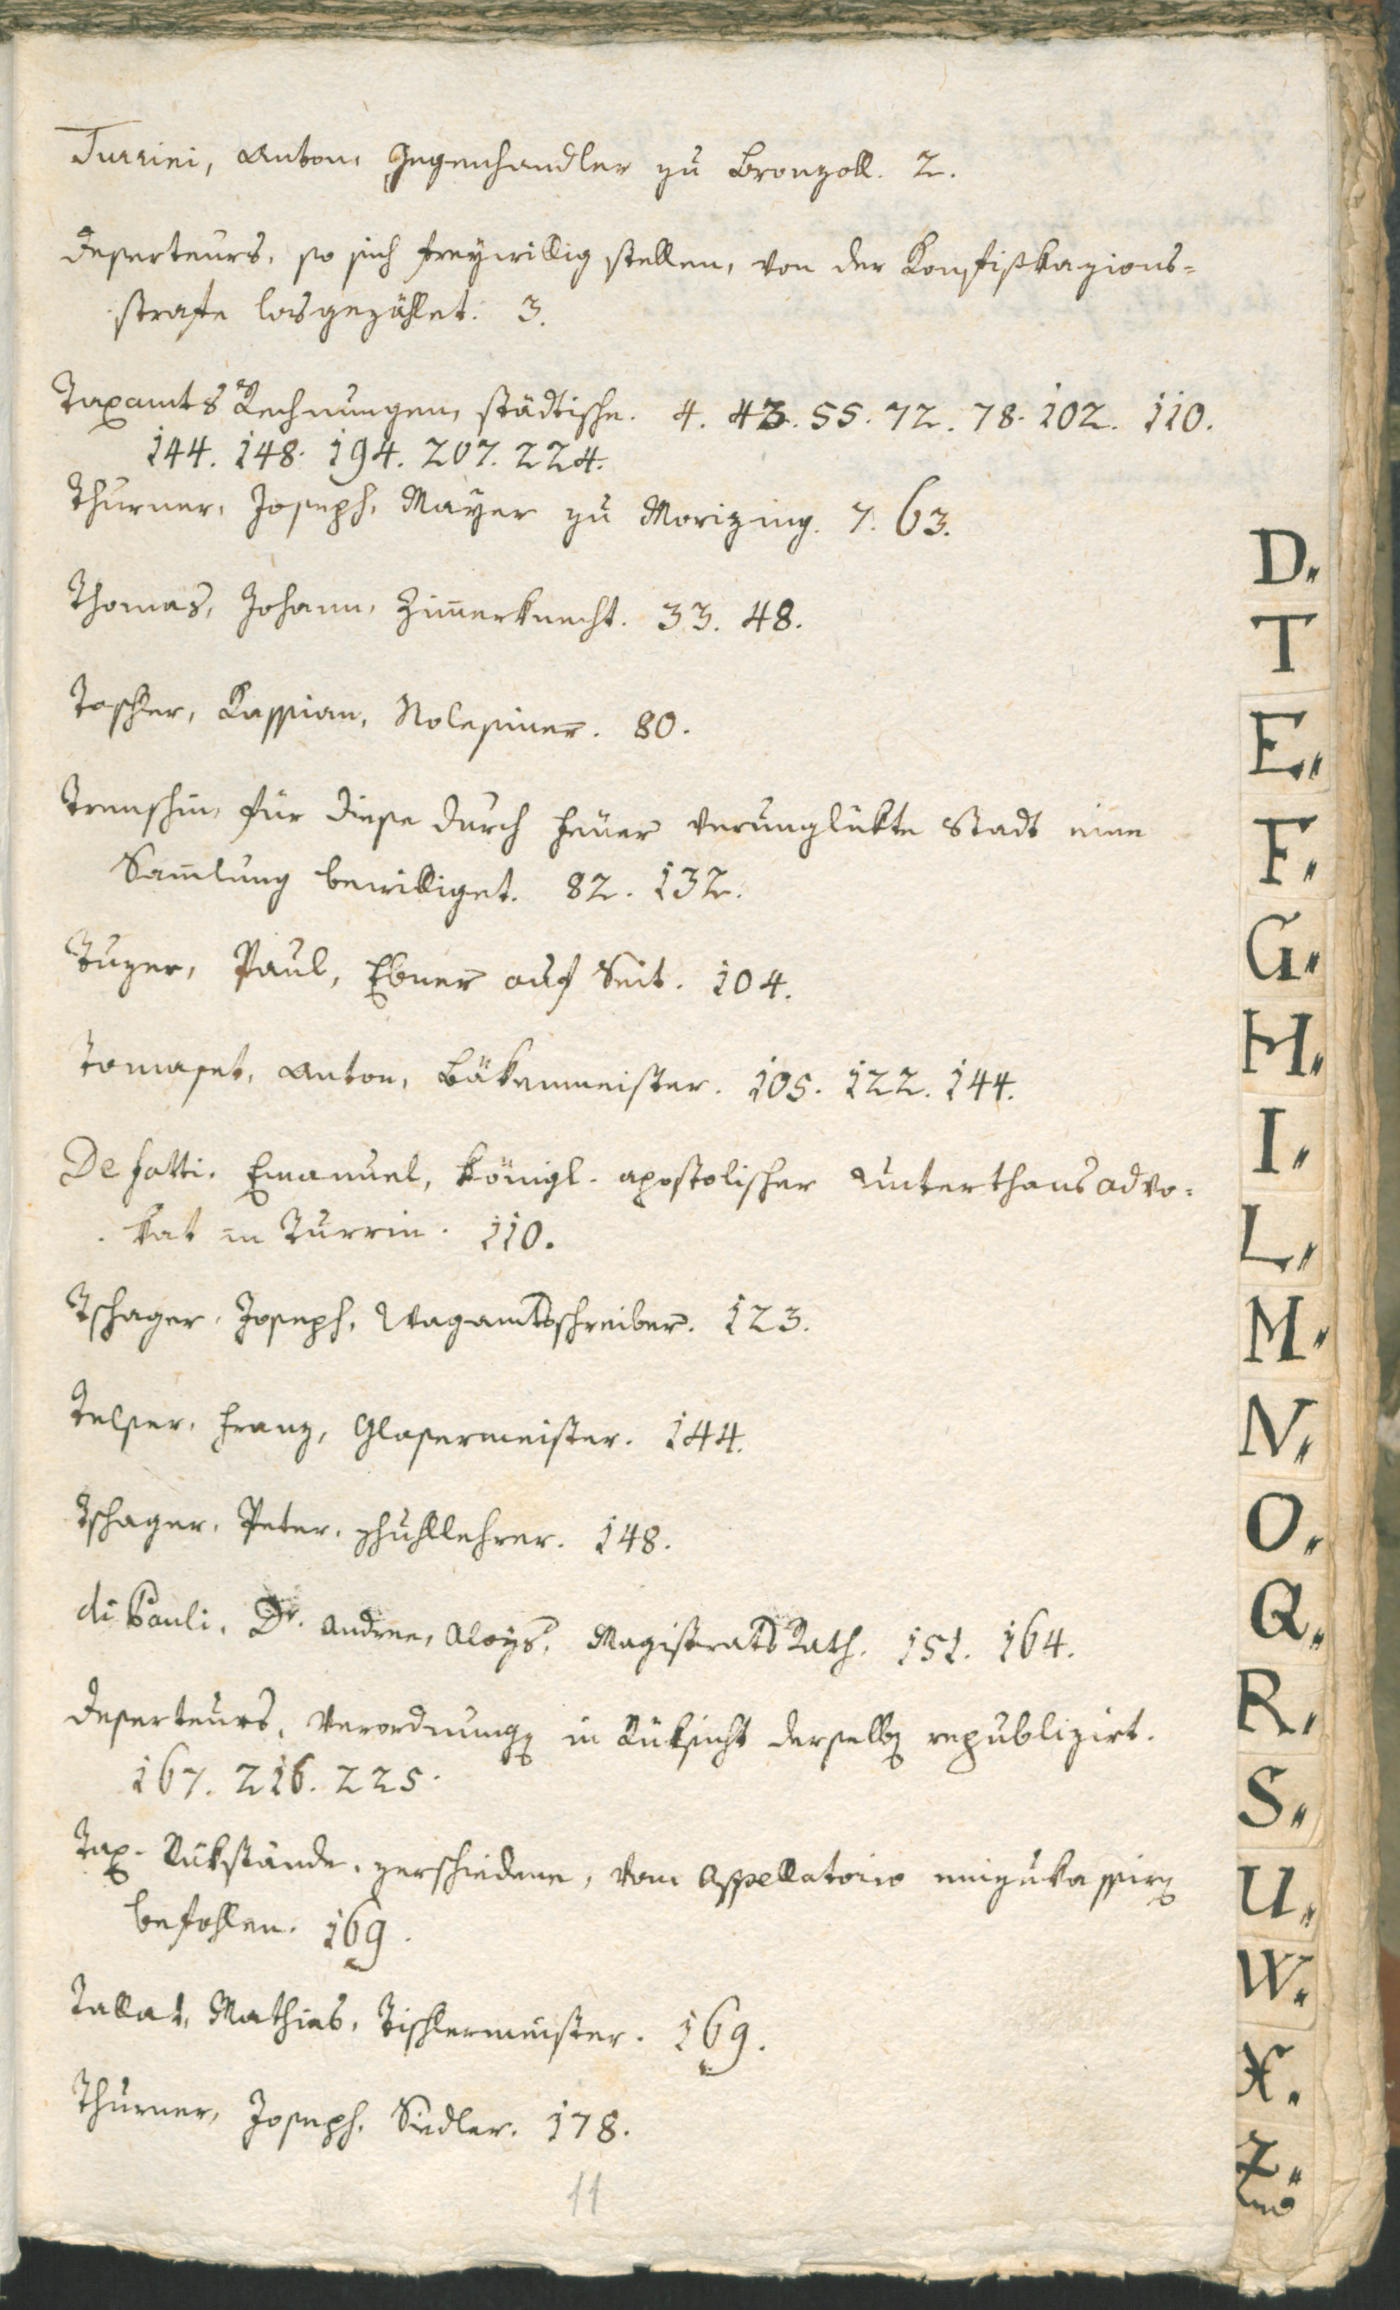 Turrini, Anton, Gegenhandler zu Bronzoll. 2.
Deserteurs, so sich freywillig stellen, von der Konfißkazions=
strafe losgezählet. 3.
Taxamts Rechnungen, städtische. 4. 43. 55. 72. 78. 102. 110.
144. 148. 194. 207. 224.
Thurner, Joseph, Mayer zu Morizing. 7. 63.
Thomas, Johann, Zim̄erknecht. 33. 48.
Taschler, Kassian, 80.
Trenschin, für diese durch Feüer verunglükte Stadt eine
Sam̄lung bewilliget. 82. 132.
Tuzer, Paul, Ebner auf Seit. 104.
Tomaset, Anton, Bäkenmeister. 105. 122. 144.
De fatti, Emanuel, königl. apostolischer Unterthansadvo=
kat in Turrin. 110.
Tschager, Joseph, Wagamtsschreiber. 123.
Telser, Franz, Glasermeister. 144.
Tschager, Peter, Schullehrer. 148.
di Pauli, Dr. Andree, Aloys, Magistrats Rath. 151. 164.
Deserteurs, Verordnungen in Rüksicht derselben republizirt.
167. 216. 225.
Tax-Rükstände, zerschiedene, vom Appellatorio einzukassiren
befohlen. 169.
Tallat, Mathias, Tischlermeister. 169.
Thurner, Joseph, Sudler. 178.
11
D.
T
E.
F.
G.
H.
I.
L.
M.
N.
O.
Q.
R.
S.
U.
W.
X.
Z.